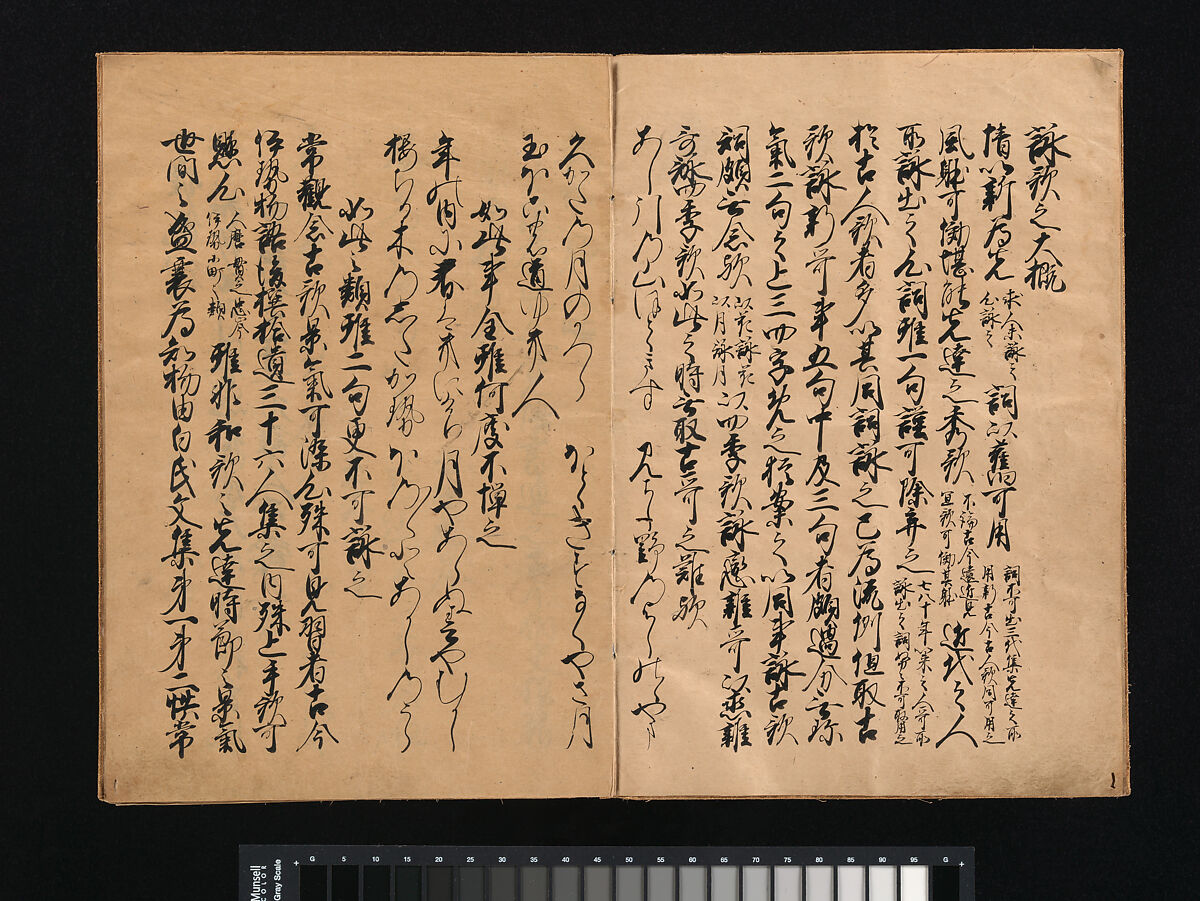 詠歌之大概
情以新為先 求人未詠之
心詠之 詞以舊可用 詞不可出三代集先達之所
用新古今古人歌同可用之
風躰可効堪能先達之秀歌 不論古今遠近見
宜歌可効其躰 近代之人
所詠出之心詞雖一句謹可除弃之 七八十年以来之人哥所
詠出之詞努々不可取用之
於古人歌者多以其同詞詠之已為流例但取古
歌詠新哥事五句中及三句者頗過分無珍
氣二句之上三四字免之猶案之以同事詠古歌
詞頗無念歟 以花詠花
以月詠月 以四季歌詠戀雜哥以戀雜
哥詠四季歌如此之時無取古哥之難歟
あし引の山ほとゝきす みよし野のよしのゝやま
久かたの月のかつら ほとゝきすなくやさ月
玉ほこの道ゆき人
如此事全雖何度不憚之
年の内に春はきにけり月やあらぬ春やむかし
桜ちる木のした加勢ほの〱とあかしのうら
如此之類雖二句更不可詠之
常觀念古歌景氣可染心殊可見習者古今
伊勢物語後撰拾遺三十六人集之内殊上手歌可
懸心 人麿貫之忠岑
伊勢小町之類 雖非和歌之先達時節之景氣
世間之盛衰為知物由白氏文集第一第二帙常
G 5 10 15 20 25 30 35 40 45 50 55 60 65 70 75 80 85 90 95 G
Munsell
COLOR
Gray Scale